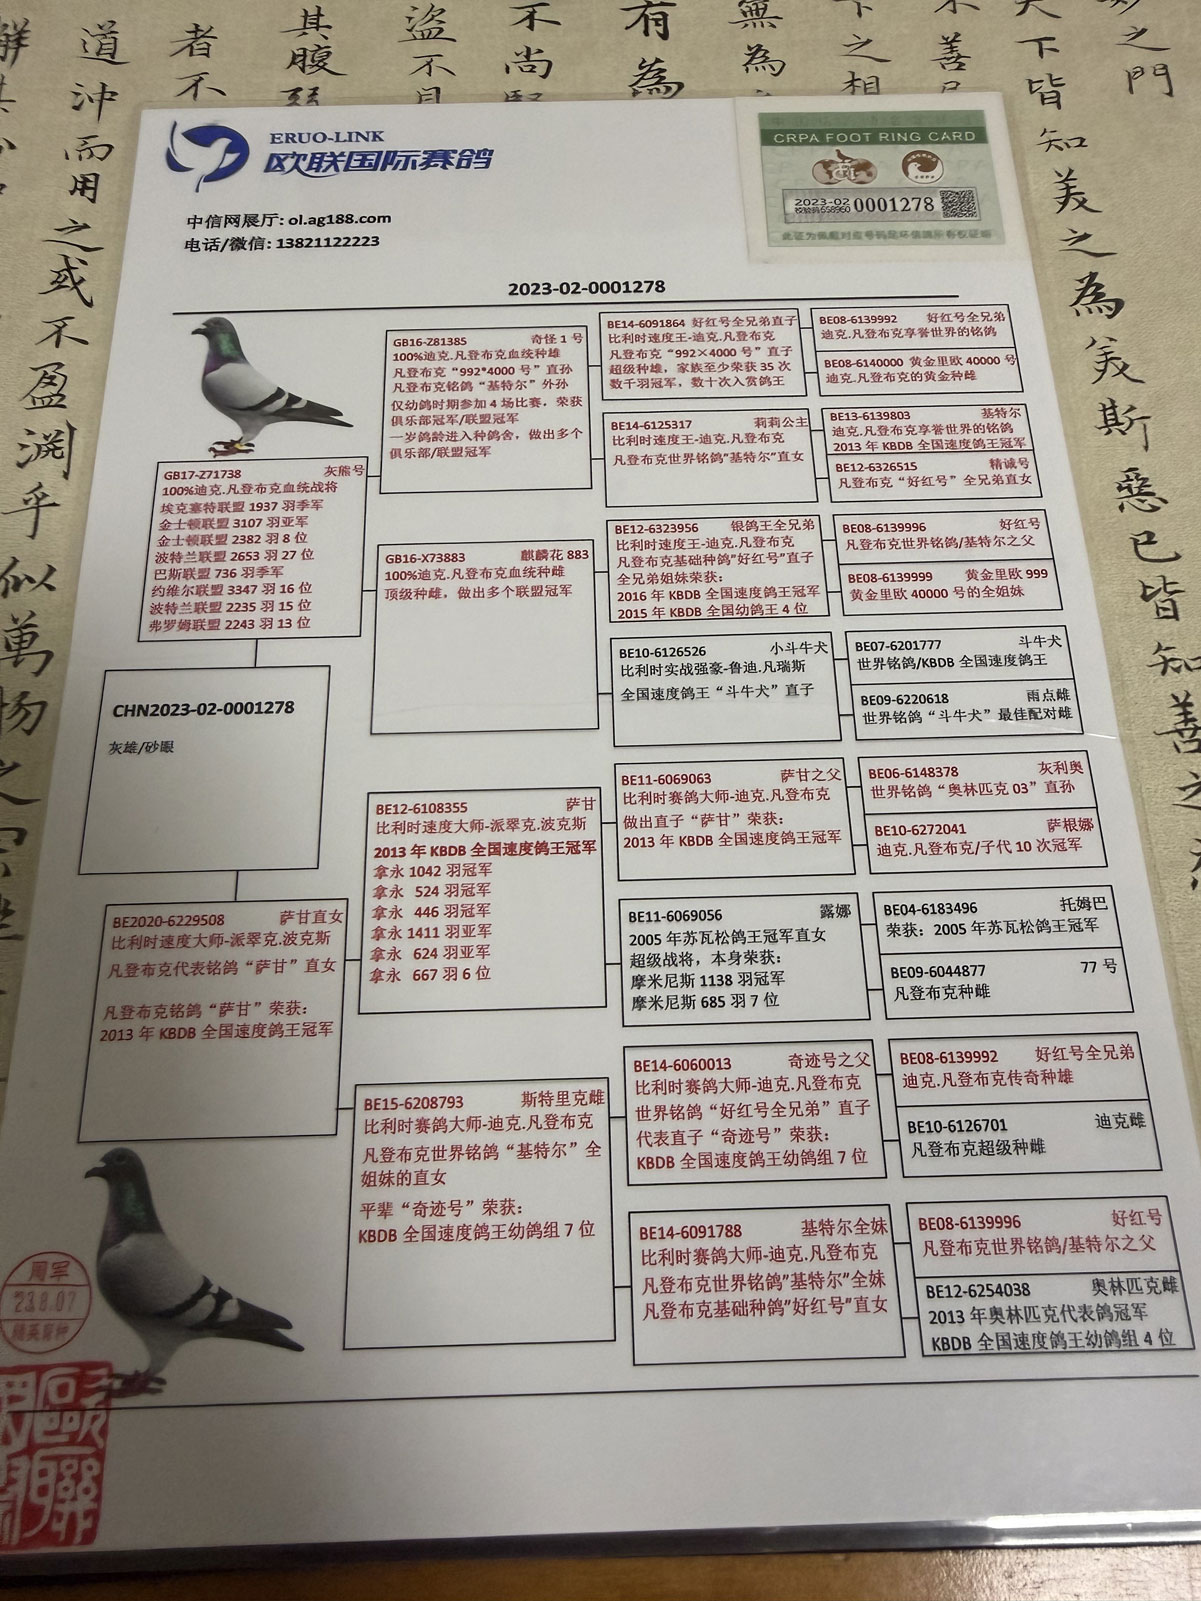 ERUO-LINK
欧联国际赛鸽
中信网展厅: ol.ag188.com
电话/微信: 13821122223
CRPA FOOT RING CARD
2023-02
校验码658960
0001278
此证为佩戴对应号码足环信鸽所有权证明
2023-02-0001278
GB17-Z71738 灰熊号
100%迪克.凡登布克血统战将
埃克塞特联盟 1937 羽季军
金士顿联盟 3107 羽亚军
金士顿联盟 2382 羽 8 位
波特兰联盟 2653 羽 27 位
巴斯联盟 736 羽季军
约维尔联盟 3347 羽 16 位
波特兰联盟 2235 羽 15 位
弗罗姆联盟 2243 羽 13 位
CHN2023-02-0001278
灰雄/砂眼
BE2020-6229508 萨甘直女
比利时速度大师-派翠克.波克斯
凡登布克代表铭鸽“萨甘”直女
凡登布克铭鸽“萨甘”荣获：
2013 年 KBDB 全国速度鸽王冠军
GB16-Z81385 奇怪 1 号
100%迪克.凡登布克血统种雄
凡登布克“992*4000 号”直孙
凡登布克铭鸽“基特尔”外孙
仅幼鸽时期参加 4 场比赛，荣获
俱乐部冠军/联盟冠军
一岁鸽龄进入种鸽舍，做出多个
俱乐部/联盟冠军
GB16-X73883 麒麟花 883
100%迪克.凡登布克血统种雌
顶级种雌，做出多个联盟冠军
BE12-6108355 萨甘
比利时速度大师-派翠克.波克斯
2013 年 KBDB 全国速度鸽王冠军
拿永 1042 羽冠军
拿永 524 羽冠军
拿永 446 羽冠军
拿永 1411 羽亚军
拿永 624 羽亚军
拿永 667 羽 6 位
BE15-6208793 斯特里克雌
比利时赛鸽大师-迪克.凡登布克
凡登布克世界铭鸽“基特尔”全
姐妹的直女
平辈“奇迹号”荣获：
KBDB 全国速度鸽王幼鸽组 7 位
BE14-6091864 好红号全兄弟直子
比利时速度王-迪克.凡登布克
凡登布克“992×4000 号”直子
超级种雄，家族至少荣获 35 次
数千羽冠军，数十次入赏鸽王
BE14-6125317 莉莉公主
比利时速度王-迪克.凡登布克
凡登布克世界铭鸽”基特尔”直女
BE12-6323956 银鸽王全兄弟
比利时速度王-迪克.凡登布克
凡登布克基础种鸽”好红号”直子
全兄弟姐妹荣获：
2016 年 KBDB 全国速度鸽王冠军
2015 年 KBDB 全国幼鸽王 4 位
BE10-6126526 小斗牛犬
比利时实战强豪-鲁迪.凡瑞斯
全国速度鸽王“斗牛犬”直子
BE11-6069063 萨甘之父
比利时赛鸽大师-迪克.凡登布克
做出直子“萨甘”荣获：
2013 年 KBDB 全国速度鸽王冠军
BE11-6069056 露娜
2005 年苏瓦松鸽王冠军直女
超级战将，本身荣获：
摩米尼斯 1138 羽冠军
摩米尼斯 685 羽 7 位
BE14-6060013 奇迹号之父
比利时赛鸽大师-迪克.凡登布克
世界铭鸽“好红号全兄弟”直子
代表直子“奇迹号”荣获：
KBDB 全国速度鸽王幼鸽组 7 位
BE14-6091788 基特尔全妹
比利时赛鸽大师-迪克.凡登布克
凡登布克世界铭鸽”基特尔”全妹
凡登布克基础种鸽”好红号”直女
BE08-6139992 好红号全兄弟
迪克.凡登布克享誉世界的铭鸽
BE08-6140000 黄金里欧 40000 号
迪克.凡登布克的黄金种雌
BE13-6139803 基特尔
迪克.凡登布克享誉世界的铭鸽
2013 年 KBDB 全国速度鸽王冠军
BE12-6326515 精诚号
凡登布克“好红号”全兄弟直女
BE08-6139996 好红号
凡登布克世界铭鸽/基特尔之父
BE08-6139999 黄金里欧 999
黄金里欧 40000 号的全姐妹
BE07-6201777 斗牛犬
世界铭鸽/KBDB 全国速度鸽王
BE09-6220618 雨点雌
世界铭鸽“斗牛犬”最佳配对雌
BE06-6148378 灰利奥
世界铭鸽“奥林匹克 03”直孙
BE10-6272041 萨根娜
迪克.凡登布克/子代 10 次冠军
BE04-6183496 托姆巴
荣获：2005 年苏瓦松鸽王冠军
BE09-6044877 77 号
凡登布克种雌
BE08-6139992 好红号全兄弟
迪克.凡登布克传奇种雄
BE10-6126701 迪克雌
凡登布克超级种雌
BE08-6139996 好红号
凡登布克世界铭鸽/基特尔之父
BE12-6254038 奥林匹克雌
2013 年奥林匹克代表鸽冠军
KBDB 全国速度鸽王幼鸽组 4 位
周军
23.8.07
精英育种
歐聯
之門
天下皆知美之為美斯惡已皆知善之
不善
下之相
無為
有為
不尚賢
盜不
其腹
者不
道沖而用之或不盈淵乎似萬物之宗